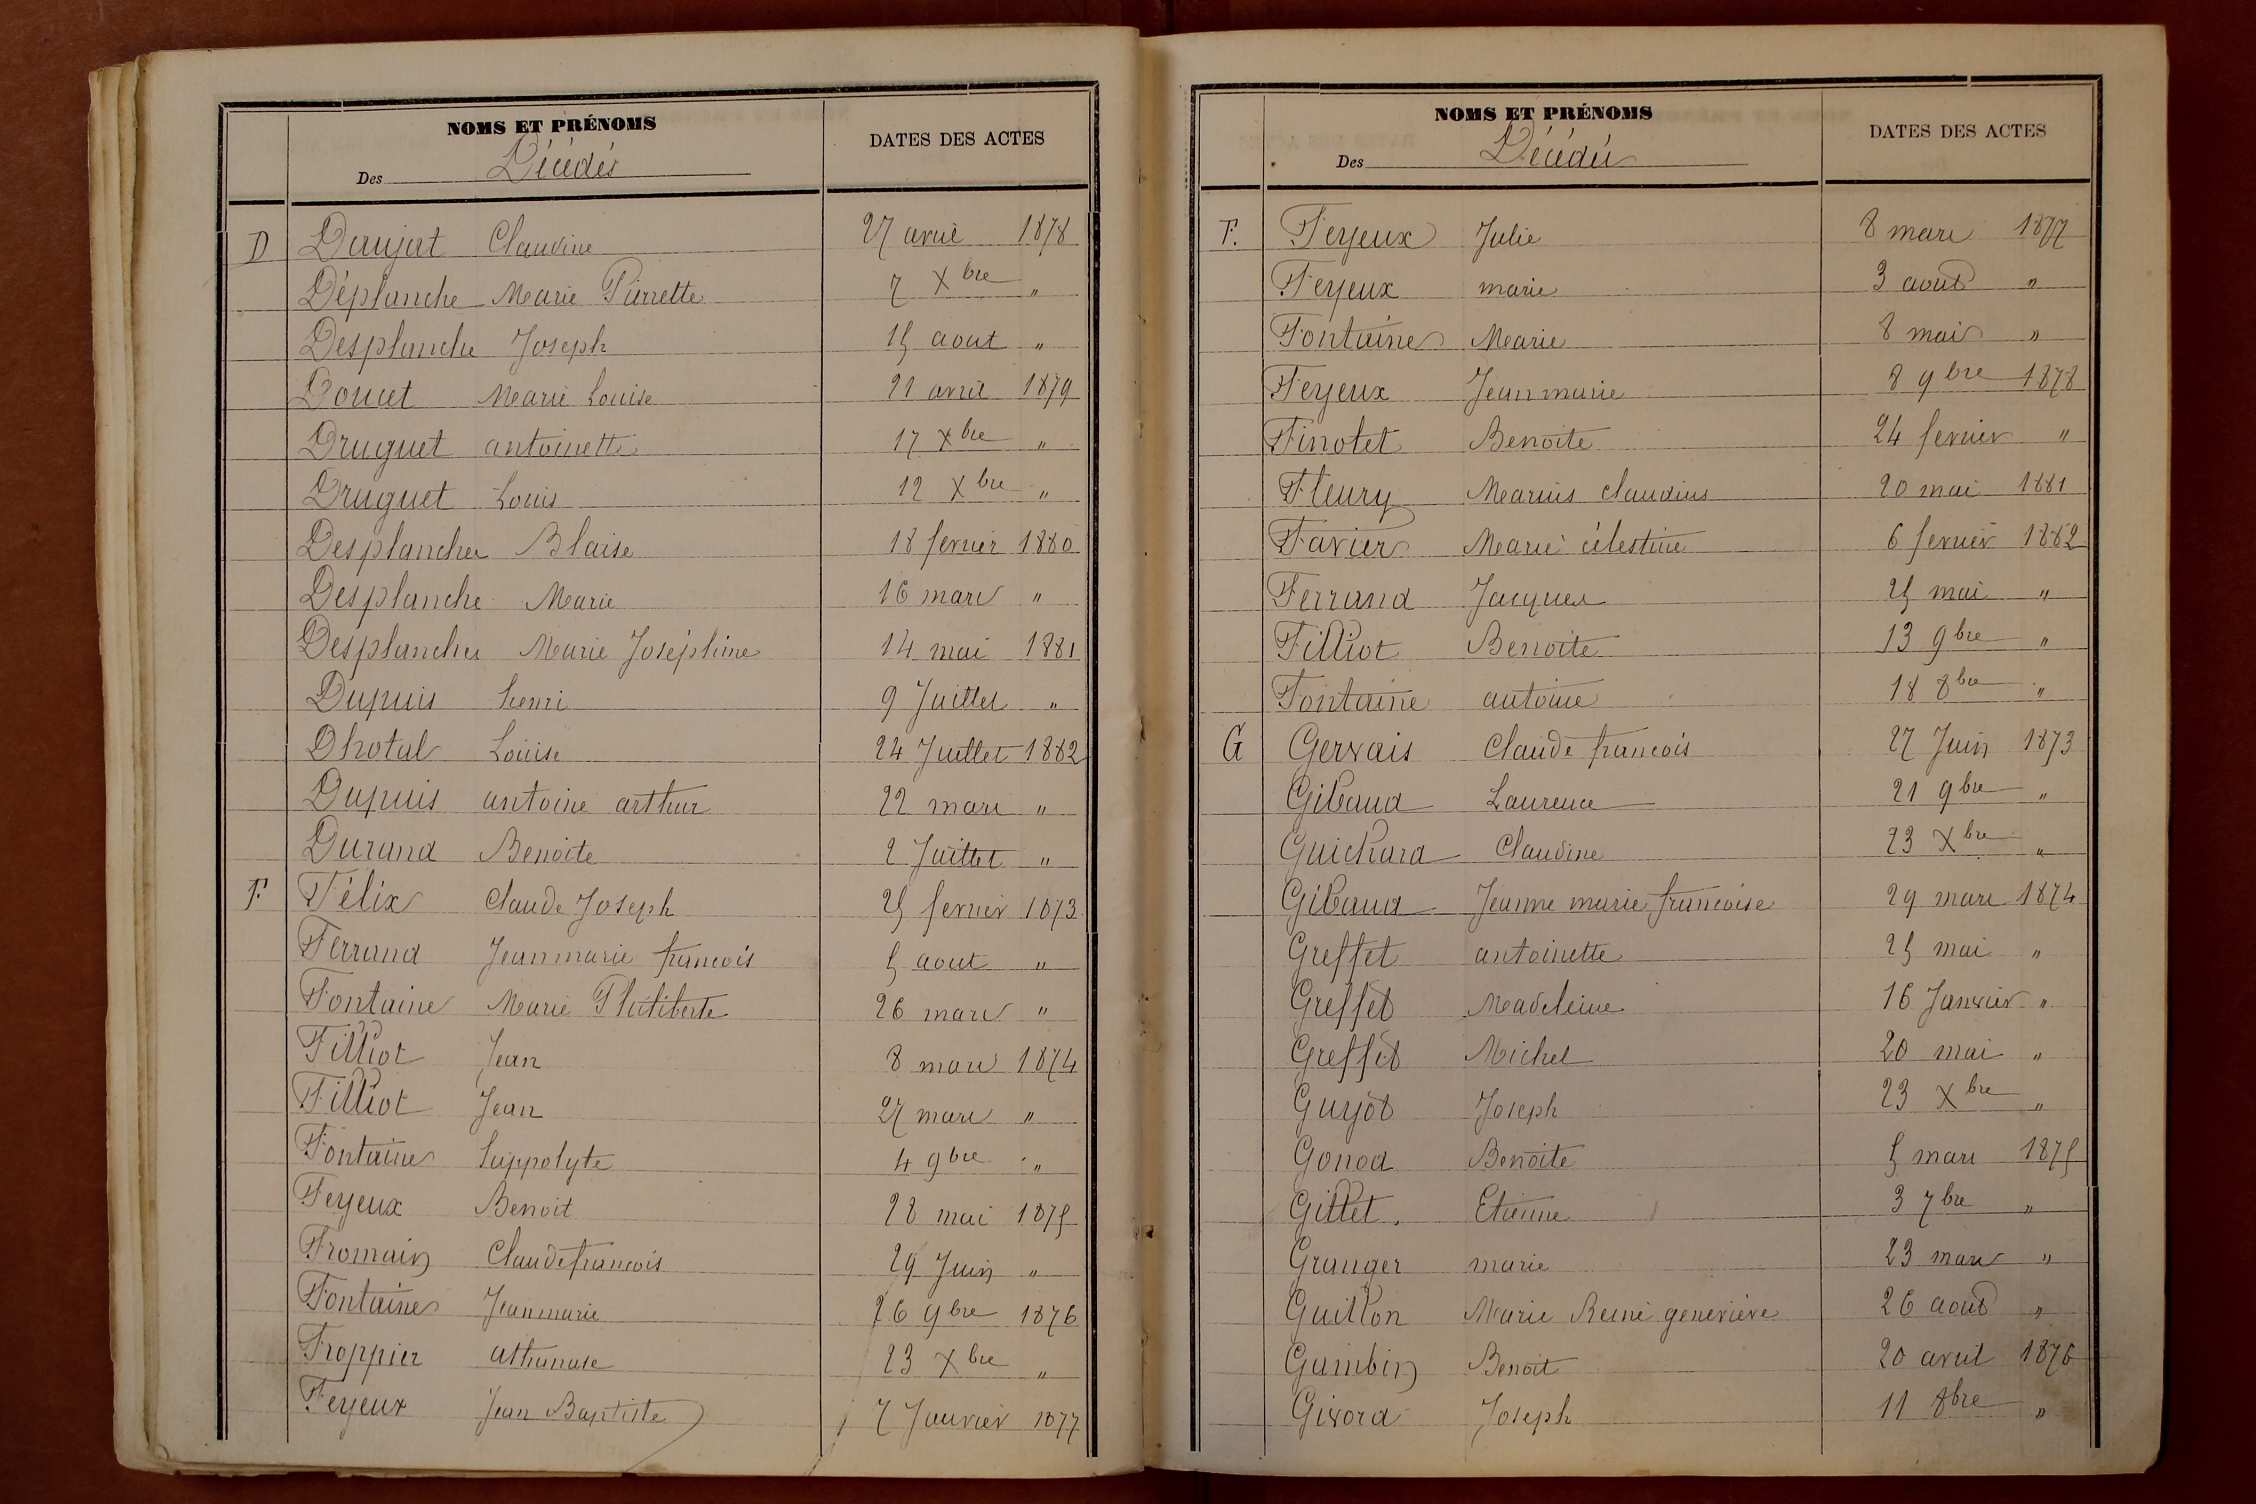 NOMS ET PRÉNOMS
DATES DES ACTES
Des Décédés
D Daujat Claudine 27 avril 1878
Déplanche Marie Pierrette 7 Xbre "
Desplanche Joseph 15 aout "
Doucet Marie Louise 21 avril 1879
Druguet antoinette 17 Xbre "
Druguet Louis 12 Xbre "
Desplanches Blaise 18 fevrier 1880
Desplanche Marie 16 mars "
Desplanches Marie Joséphine 14 mai 1881
Dupuis henri 9 Juillet "
Dhotal Louise 24 Juillet 1882
Dupuis antoine arthur 22 mars "
Durand Benoite 2 Juillet "
F. Félix Claude Joseph 25 fevrier 1873
Ferrand Jeanmarie francois 5 aout "
Fontaine Marie Philiberte 26 mars "
Filliot Jean 8 mars 1874
Filliot Jean 27 mars "
Fontaine hippolyte 4 9bre "
Feyeux Benoit 28 mai 1875
Fromain Claude francois 29 Juin "
Fontaine Jeanmarie 26 9bre 1876
Froppier athanase 23 Xbre "
Feyeux Jean Baptiste 7 Janvier 1877
NOMS ET PRÉNOMS
DATES DES ACTES
Des Décédés
F. Feyeux Julie 8 mars 1877
Feyeux marie 3 aout "
Fontaine Marie 8 mai "
Feyeux Jeanmarie 8 9bre 1878
Finotet Benoite 24 fevrier "
Fleury Marius claudius 20 mai 1881
Favier Marie célestine 6 fevrier 1882
Ferrand Jacques 25 mai "
Filliot Benoite 13 9bre "
Fontaine antoine 18 8bre "
G Gervais Claude francois 27 Juin 1873
Gibaud Laurence 21 9bre "
Guichard Claudine 23 Xbre "
Gibaud Jeanne marie francoise 29 mars 1874
Greffet antoinette 25 mai "
Greffet Madeleine 16 Janvier "
Greffet Michel 20 mai "
Guyot Joseph 23 Xbre "
Gonod Benoite 5 mars 1875
Gillet. Etienne 3 7bre "
Granger marie 23 mars "
Guillon Marie Reine geneviève 26 aout "
Gambin Benoit 20 avril 1876
Givord Joseph 11 8bre "